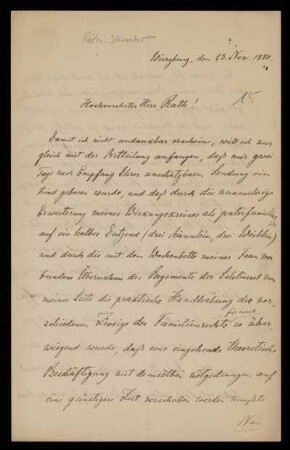 Würzburg, den 23. Nov. 1880.
15
Hochverehrter Herr Rath!
Damit ich nicht undankbar erscheine, will ich nur
gleich mit der Mittheilung anfangen, daß mir zwei
Tage nach Empfang Ihrer unschätzbaren Sendung ein
Kind geboren wurde, und daß durch die nunmehrige
Erweiterung meines Wirkungskreises als paterfamilias
auf ein halbes Dutzend (drei Männlein, drei Weiblein)
und durch die mit dem Wochenbette meiner Frau ver-
bundene Übernahme des Regiments der Schlüssel von
meiner Seite die praktische Handhabung der ver-
schiedenen Zweige des Familienrechts für mich so über-
wiegend wurde, daß eine eingehende theoretische
Beschäftigung mit demselben nothgedrungen auf
eine günstigere Zeit verschoben werden mußte.
Nun